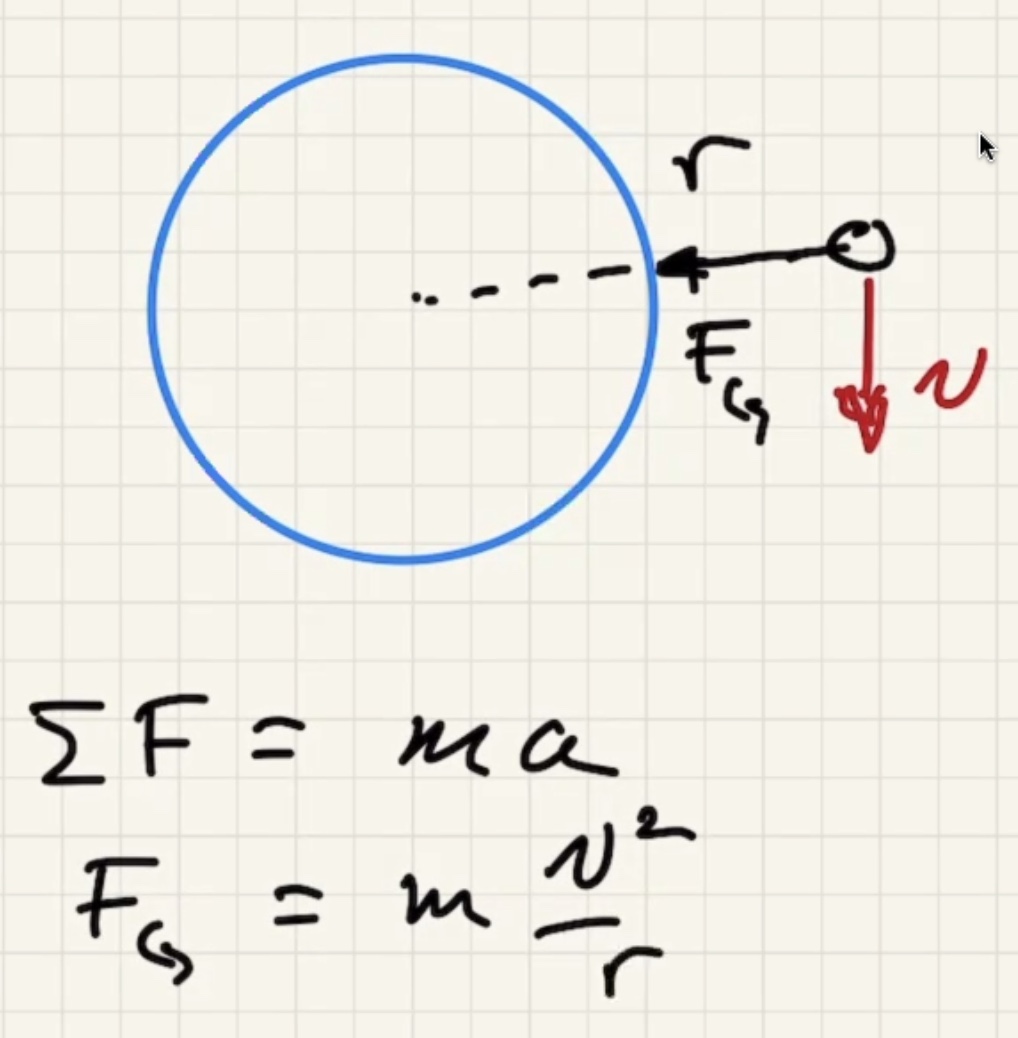 r
F_G
v
ΣF = ma
F_G = m v²/r